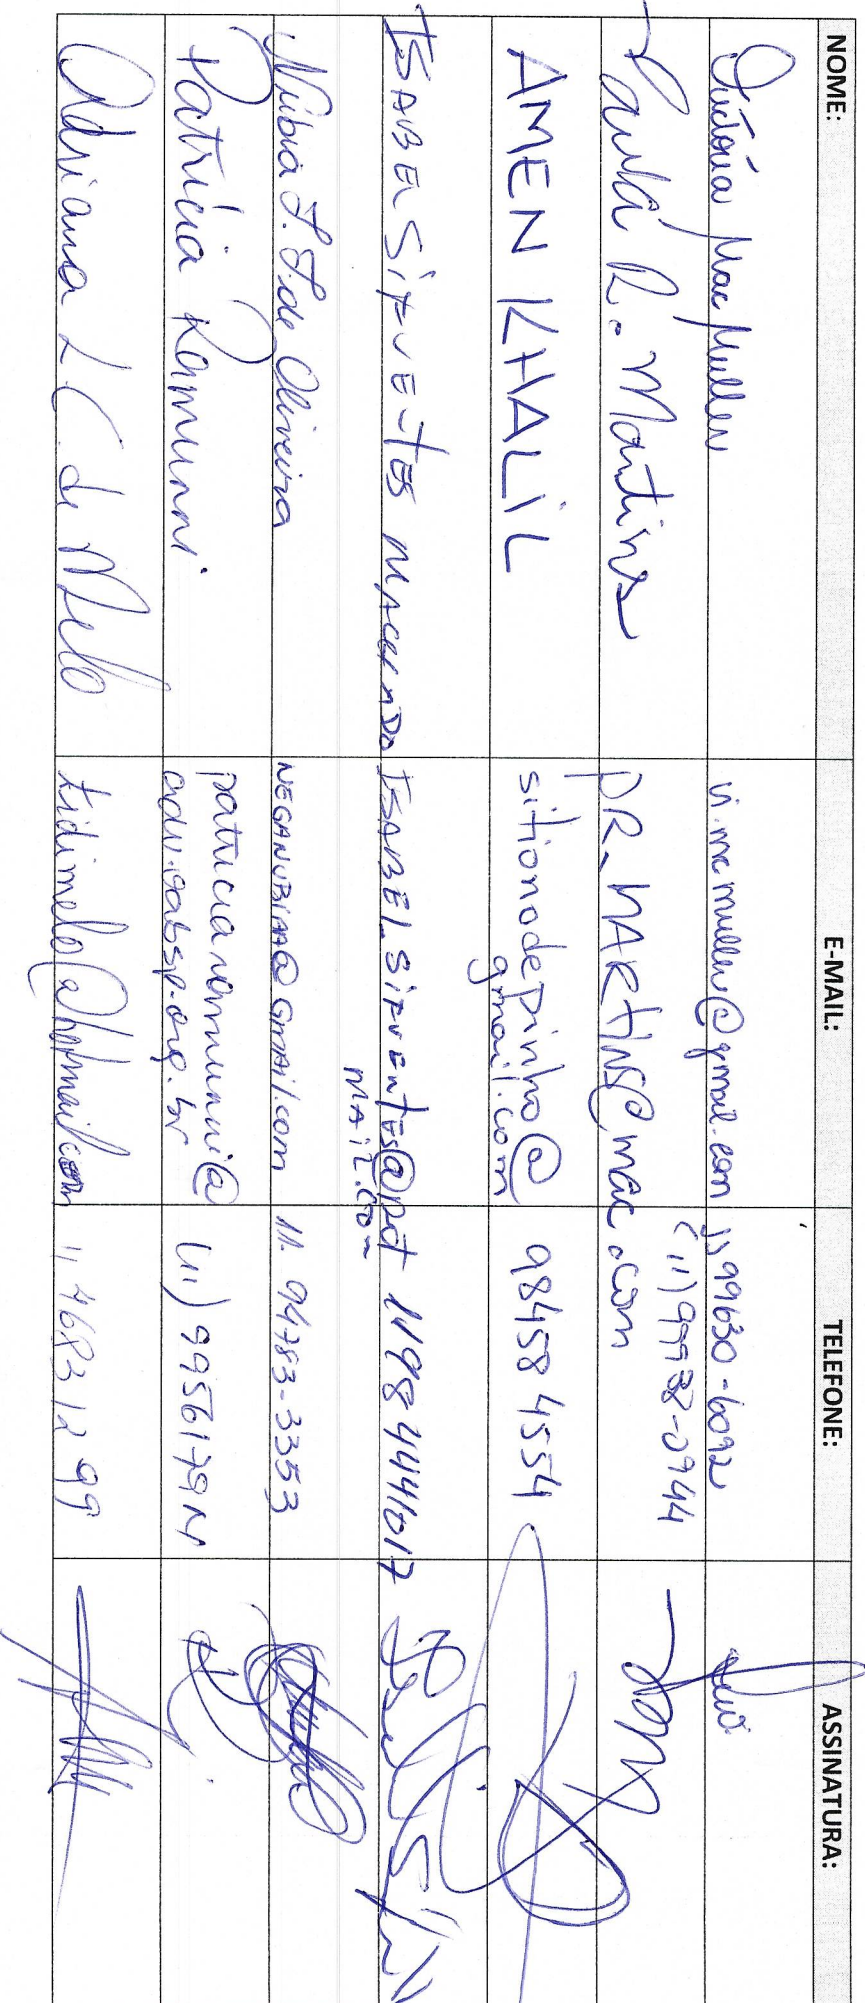 NOME: E-MAIL: TELEFONE: ASSINATURA:
Victoria Mac Mullen vi.mcmullen@gmail.com 11 99630-6092
Paula R. Martins pR_MARTINS@mac.com (11) 99938-0944
AMEN KHALIL sitionodepinho@ 98458 4554
gmail.com
ISABEL SIFUENTES MACHADO ISABEL_SIFUENTES@hot 1198 4441017
MAIL.COM
Núbia S. S. de Oliveira NEGANUBIAA@GMAIL.com 11. 94783-3353
Patrícia Ramunni patriciaramunni@ (11) 99561791
adv.oabsp.org.br
Adriana L C de Melo tidimelo@hotmail.com 11 46831299